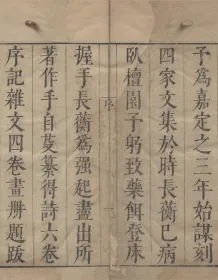 予爲嘉定之三年始謀刻
四家文集於時長蘅已病
臥檀園予躬致藥餌登床
序
握手長蘅爲強起盡出所
著作手自芟纂得詩六卷
序記雜文四卷畫册題跋